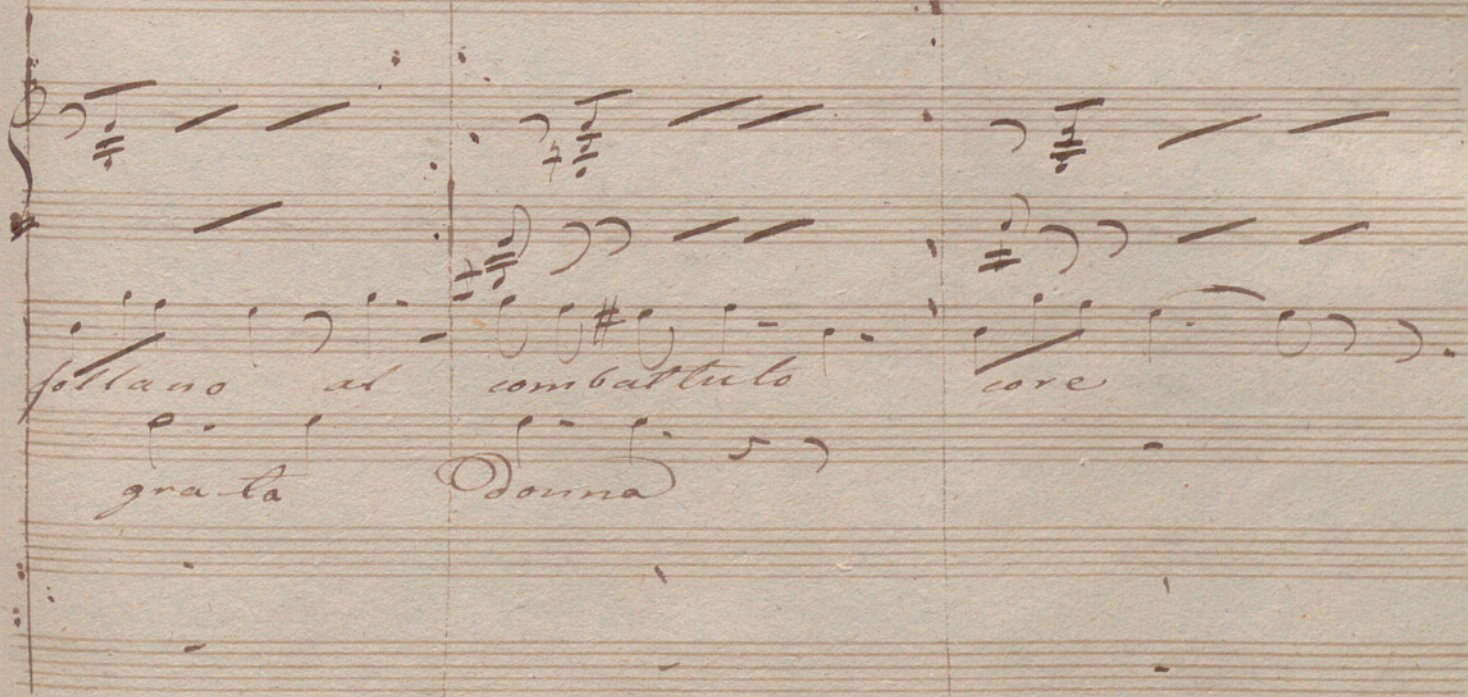 follano al combattuto core
grata donna